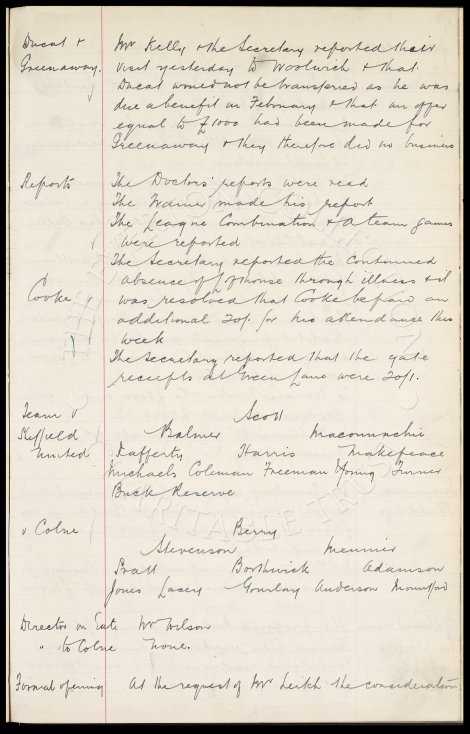 Ducat &
Greenaway.
Mr Kelly & the Secretary reported their
visit yesterday to Woolwich & that
Ducat would not be transferred as he was
due a benefit in February & that an offer
equal to £1000 had been made for
Greenaway & they therefore did no business
Reports
The Doctors' reports were read
The Trainer made his report
The League Combination & A team games
were reported
The Secretary reported the continued
absence of house through illness & it
Cooke
was resolved that Cooke be paid an
additional 20/. for his attendance this
week
The Secretary reported that the gate
receipts at Green Lane were 20/1.
Team v
Sheffield
United
Scott
Balmer Maconnachie
Rafferty Harris Makepeace
Michaels Coleman Freeman Young Turner
Buck Reserve
v Colne
Berry
Stevenson Meunier
Pratt Borthwick Adamson
Jones Lacey Gourlay Anderson Mountford
Director on Gate Mr Wilson
" to Colne None.
Formal opening At the request of Mr Leitch the consideration